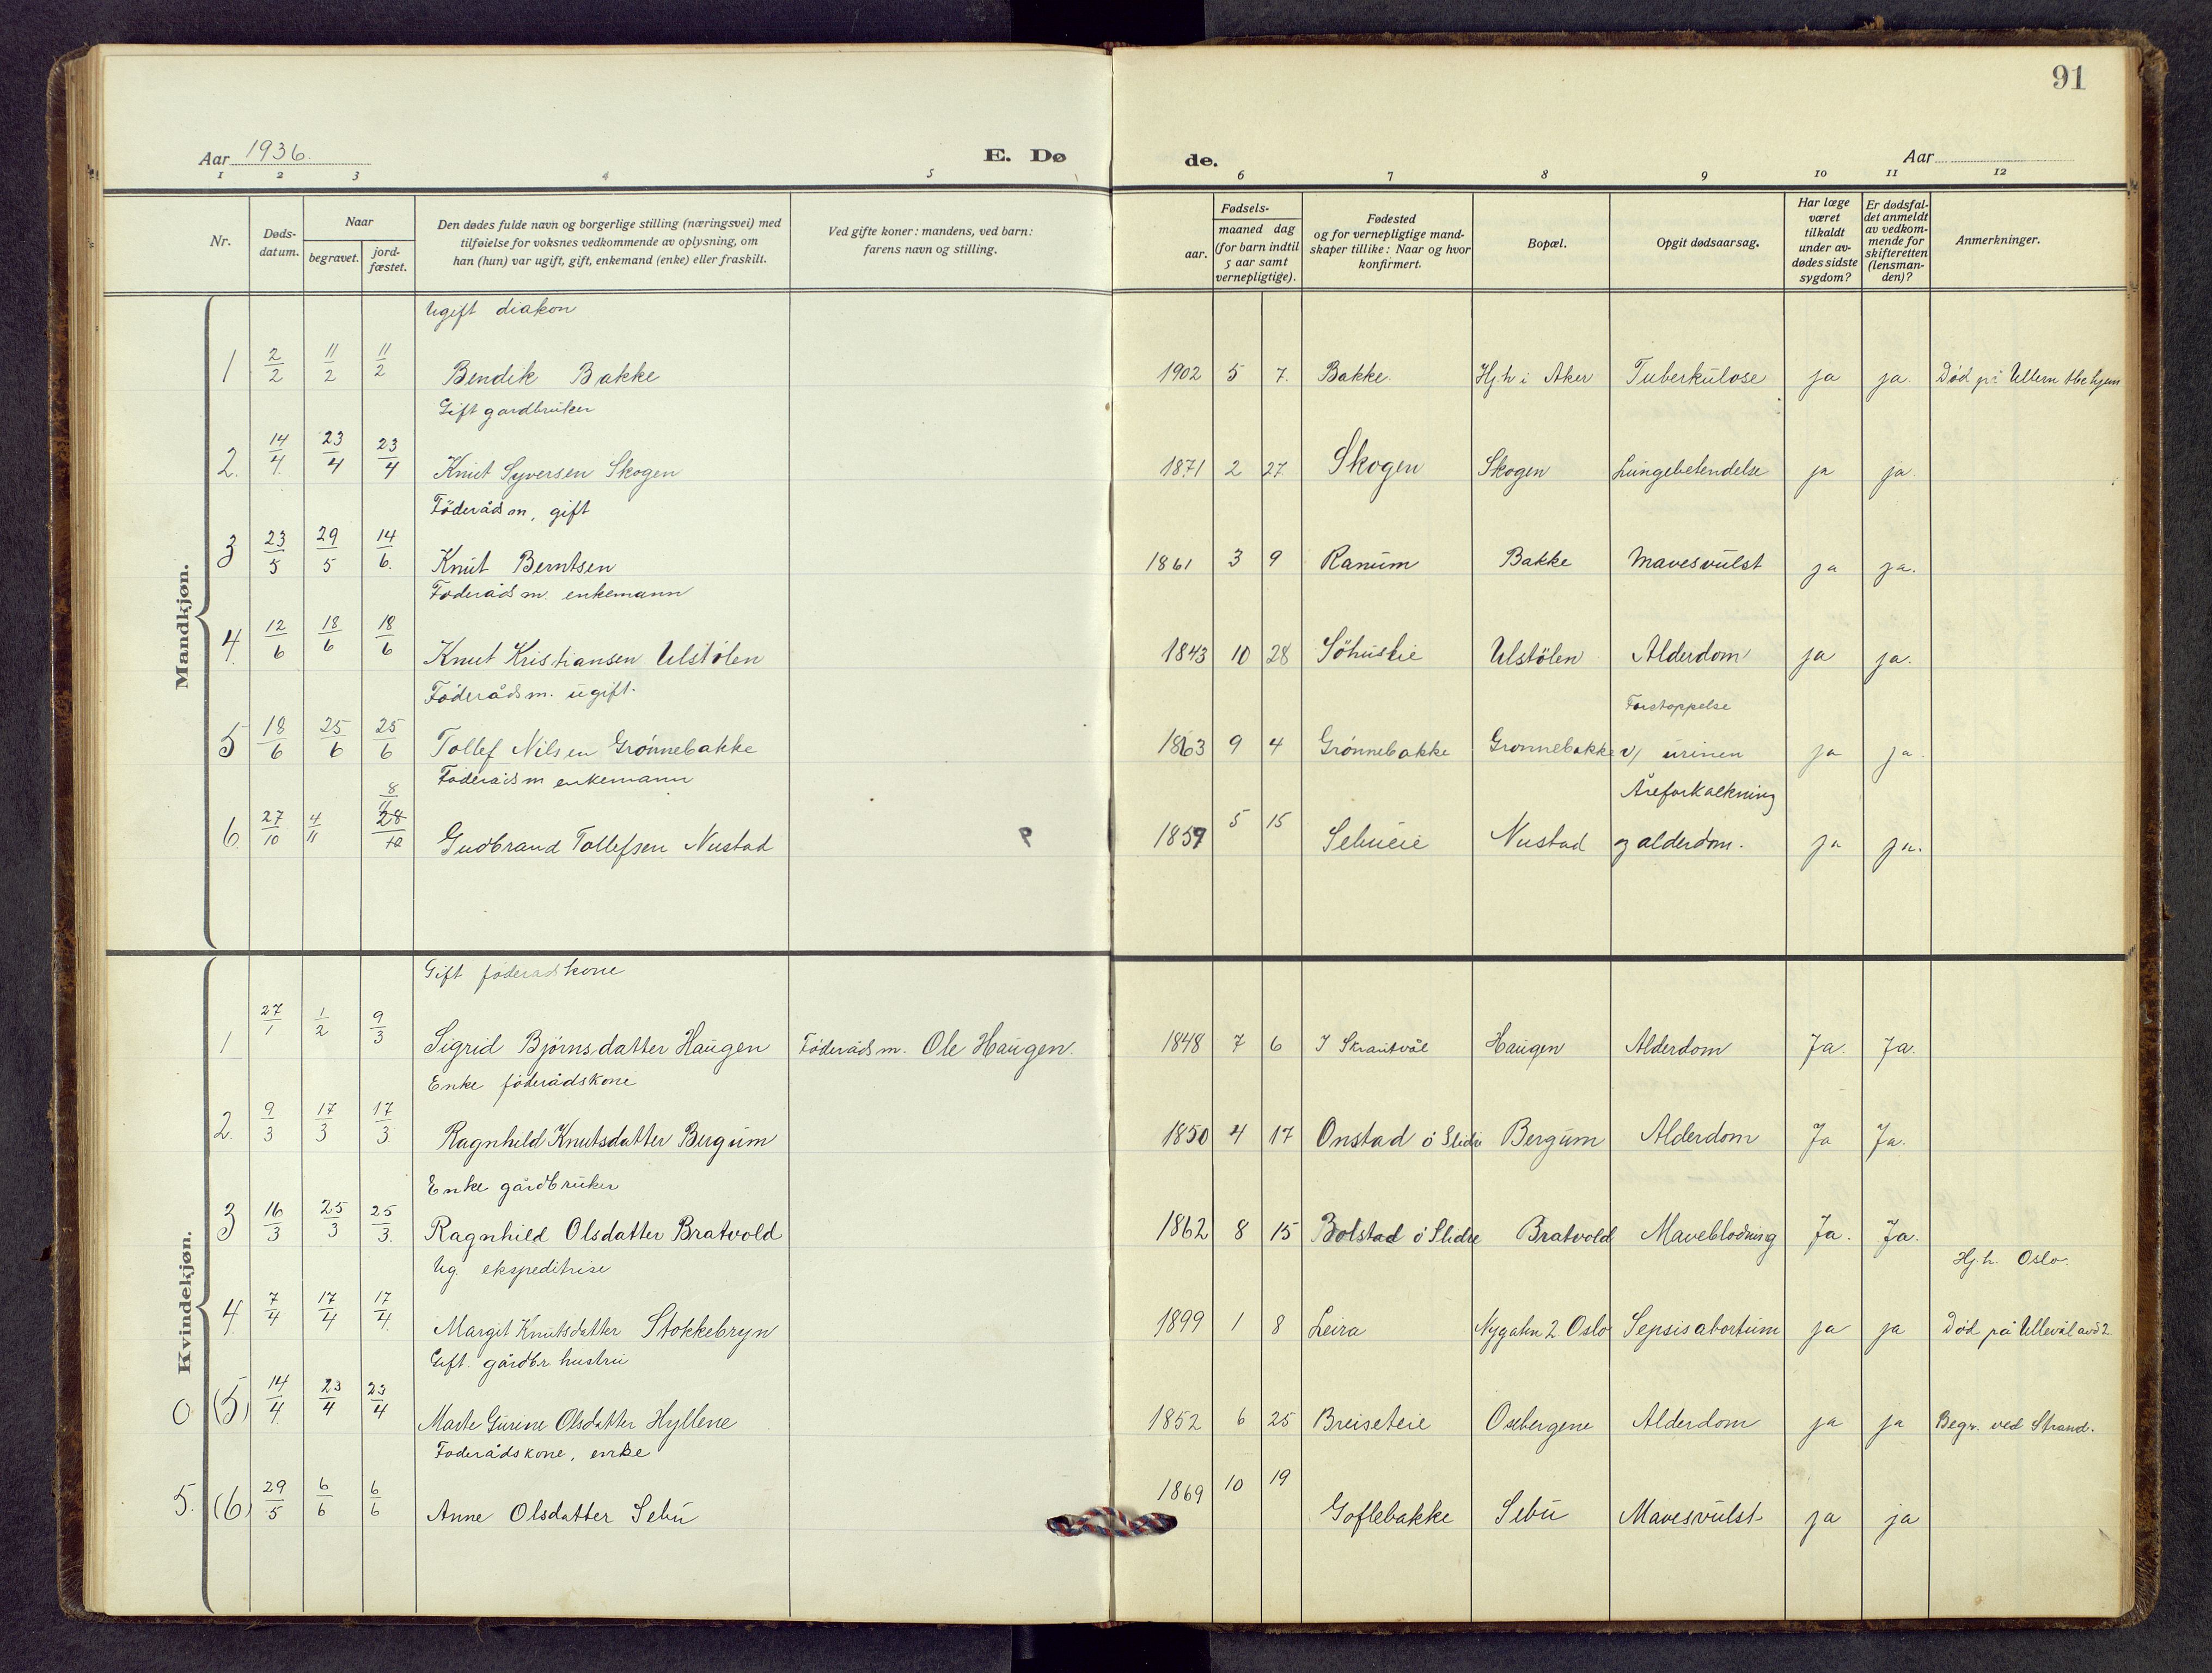 91
Aar 1936.
E. Dø
de.
Aar
1 2 3 4 5 6 7 8 9 10 11 12
Nr.
Døds-
datum.
Naar
begravet.
jord-
fæstet.
Den dødes fulde navn og borgerlige stilling (næringsvei) med
tilføielse for voksnes vedkommende av oplysning, om
han (hun) var ugift, gift, enkemand (enke) eller fraskilt.
Ved gifte koner: mandens, ved barn:
farens navn og stilling.
Fødsels-
aar.
maaned dag
(for barn indtil
5 aar samt
vernepligtige).
Fødested
og for vernepligtige mand-
skaper tillike: Naar og hvor
konfirmert.
Bopæl.
Opgit dødsaarsag.
Har læge
været
tilkaldt
under av-
dødes sidste
sygdom?
Er dødsfal-
det anmeldt
av vedkom-
mende for
skifteretten
(lensman-
den)?
Anmerkninger.
Mandkjøn.
Ugift diakon
1 2/2 11/2 11/2 Bendik Bakke 1902 5 7. Bakke. Hj.h i Aker Tuberkulose ja ja. Død på Ullern tbc hjem
Gift gardbruker
2. 14/4. 23/4 23/4 Knut Syversen Skogen 1871 2 27. Skogen Skogen Lungebetendelse ja ja.
Föderådsm, gift
3 23/5 29/5 14/6. Knut Berntsen 1861 3 9 Ranum Bakke Mavesvulst ja ja.
Föderådsm. enkemann
4. 12/6 18/6 18/6 Knut Kristiansen Ulstölen 1843 10 28 Ulstölen Alderdom ja ja.
Föderådsm. ugift.
Forstoppelse
5 18/6 25/6 25/6 Tollef Nilsen Grönnebakke 1863 9 4 Grönnebakke Grønnebakke v/ urinen ja ja.
Föderådsm enkemann
Åreforkalkning
6. 27/10 4/11 8/11 28/10 Gudbrand Tollefsen Nustad P 1859 5 15 Sebueie Nustad og alderdom. ja ja.
Kvindekjøn.
Gift föderadskone
1 27/1 1/2 9/3 Sigrid Björnsdatter Haugen Föderådsm. Ole Haugen. 1848 7 6 I Skrautvål Haugen Alderdom Ja. Ja.
Enke föderådskone
2. 9/3 17/3 17/3. Ragnhild Knutsdatter Bergum 1850 4 17 Onstad ö Slidre Bergum Alderdom Ja Ja.
Enke gårdbruker
3 16/3 25/3 25/3. Ragnhild Olsdatter Bratvold 1862 8 15 Bolstad ö Slidre Bratvold Maveblödning Ja. Ja.
Ug. ekspeditrise
Hj.h. Oslo.
4. 7/4 17/4 17/4. Margit Knutsdatter Stokkebryn 1899 1 8 Leira Nygaten 2 Oslo Sepsis abortum ja ja Død på Ullevål avd 2.
Gift. gårdbr hustru
0 (5) 14/4. 23/4 23/4 Marte Gurine Olsdatter Hyllene 1852 6 25 Breiseteie Alderdom ja ja Begr. ved Strand.
Föderådskone, enke
5. (6) 29/5 6/6 6/6 Anne Olsdatter Sebu 1869 10 19 Goflebakke Sebu Mavesvulst ja ja